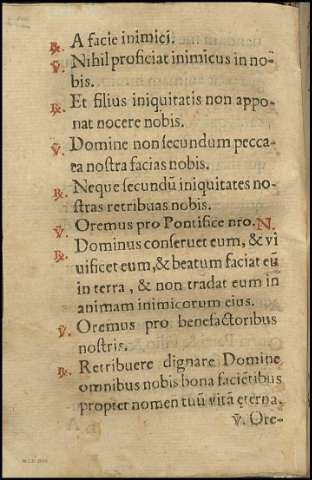 ℟. A facie inimici.
℣. Nihil proficiat inimicus in no-
bis.
℟. Et filius iniquitatis non appo-
nat nocere nobis.
℣. Domine non secundum pecca-
ta nostra facias nobis.
℟. Neque secundũ iniquitates no-
stras retribuas nobis.
℣. Oremus pro Pontifice nro. N.
℟. Dominus conseruet eum, & vi
uificet eum, & beatum faciat eũ
in terra, & non tradat eum in
animam inimicorum eius.
℣. Oremus pro benefactoribus
nostris.
℟. Retribuere dignare Domine
omnibus nobis bona faciẽtibus
propter nomen tuũ vitã eterna.
℣. Ore-